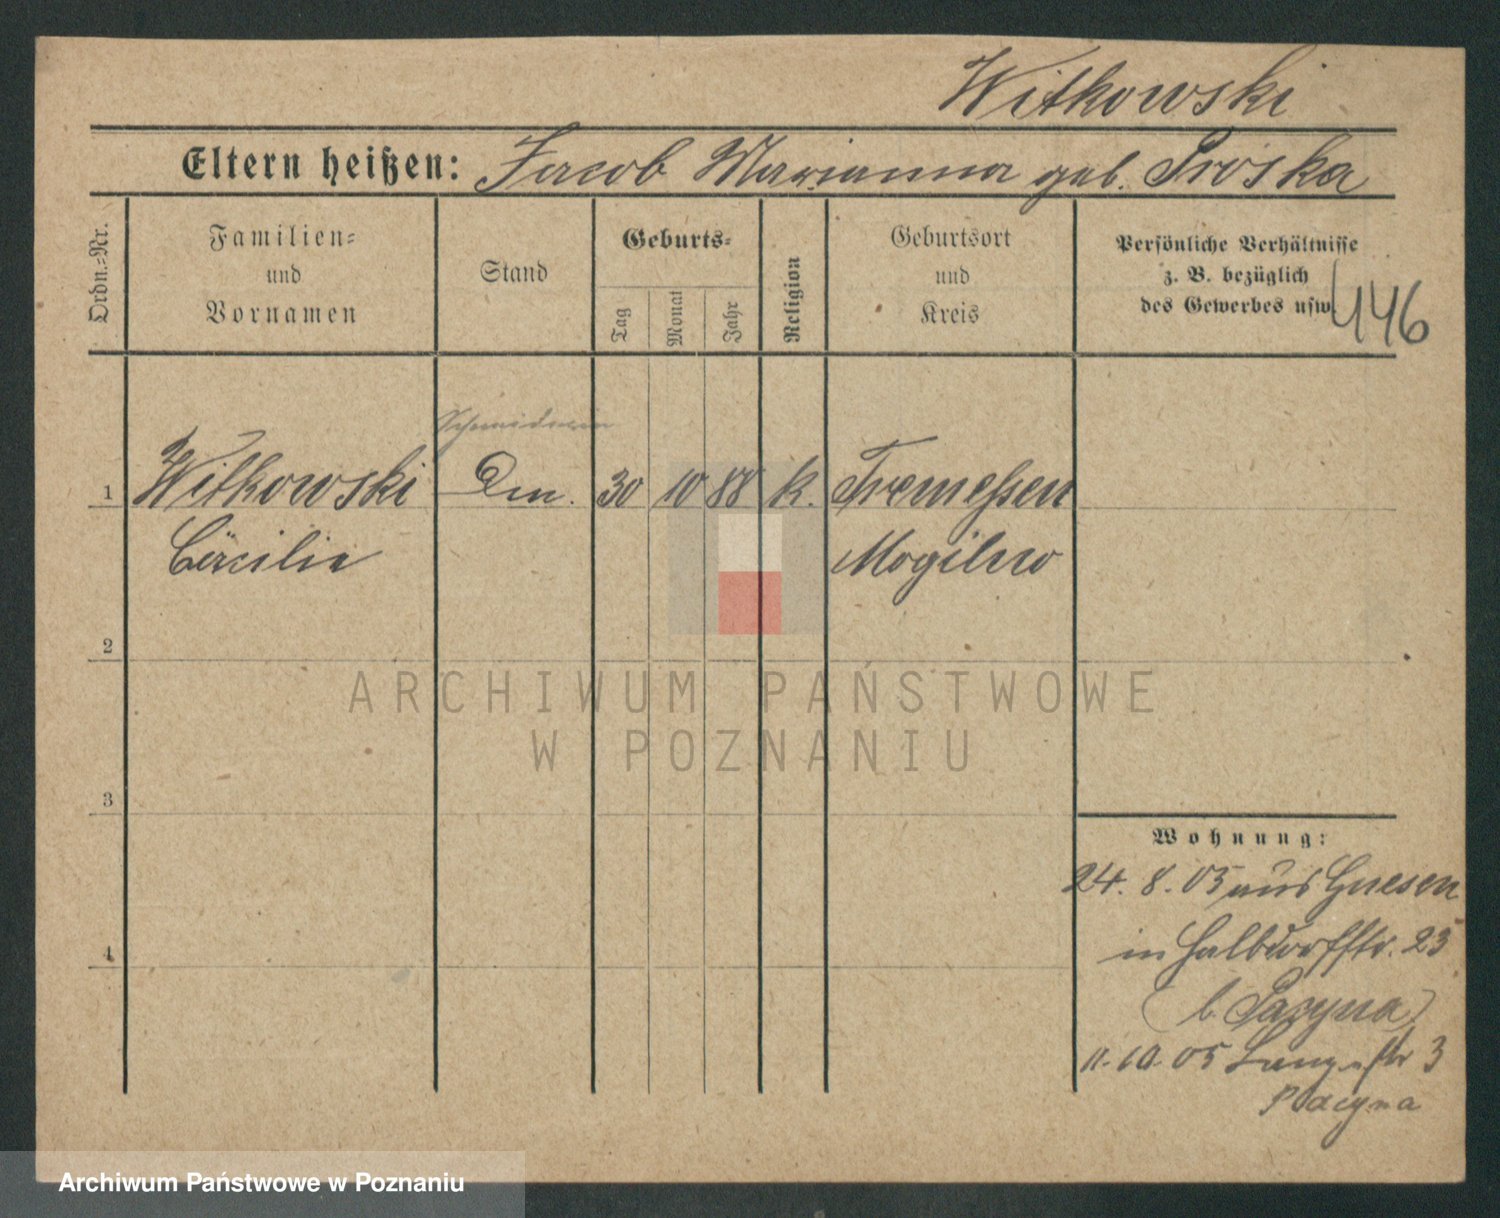 Witkowski
Eltern heißen: Jacob Marianna geb. Proska
Ordn.-Nr.
Familien- und Vornamen
Stand
Geburts-
Tag
Monat
Jahr
Religion
Geburtsort und Kreis
Persönliche Verhältnisse
z. B. bezüglich
des Gewerbes usw.
446
Schneiderin
1 Witkowski Dm. 30 10 88 k. Tremessen
Cäcilie Mogilno
2
3
4
ARCHIWUM PAŃSTWOWE
W POZNANIU
Wohnung:
24. 8. 05 aus Gnesen
in Halbdorfstr. 23
(b.
11. 10. 05 Langestr 3
Archiwum Państwowe w Poznaniu